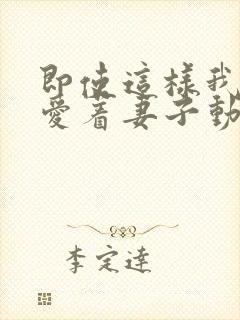 即使這樣我
愛着妻子動
李定達